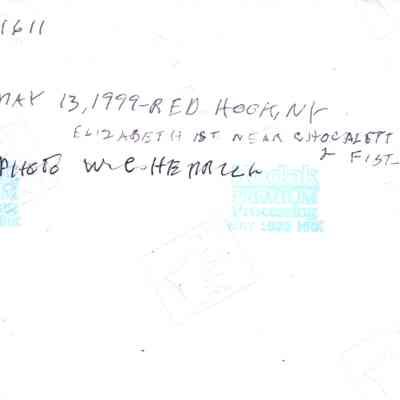 1611
MAY 13, 1999-RED HOOK, NY
ELIZABETH ST NEAR CHOCALETT
2 FIST
PHOTO W.C. HENRICH
Kodak
PREMIUM
Processing